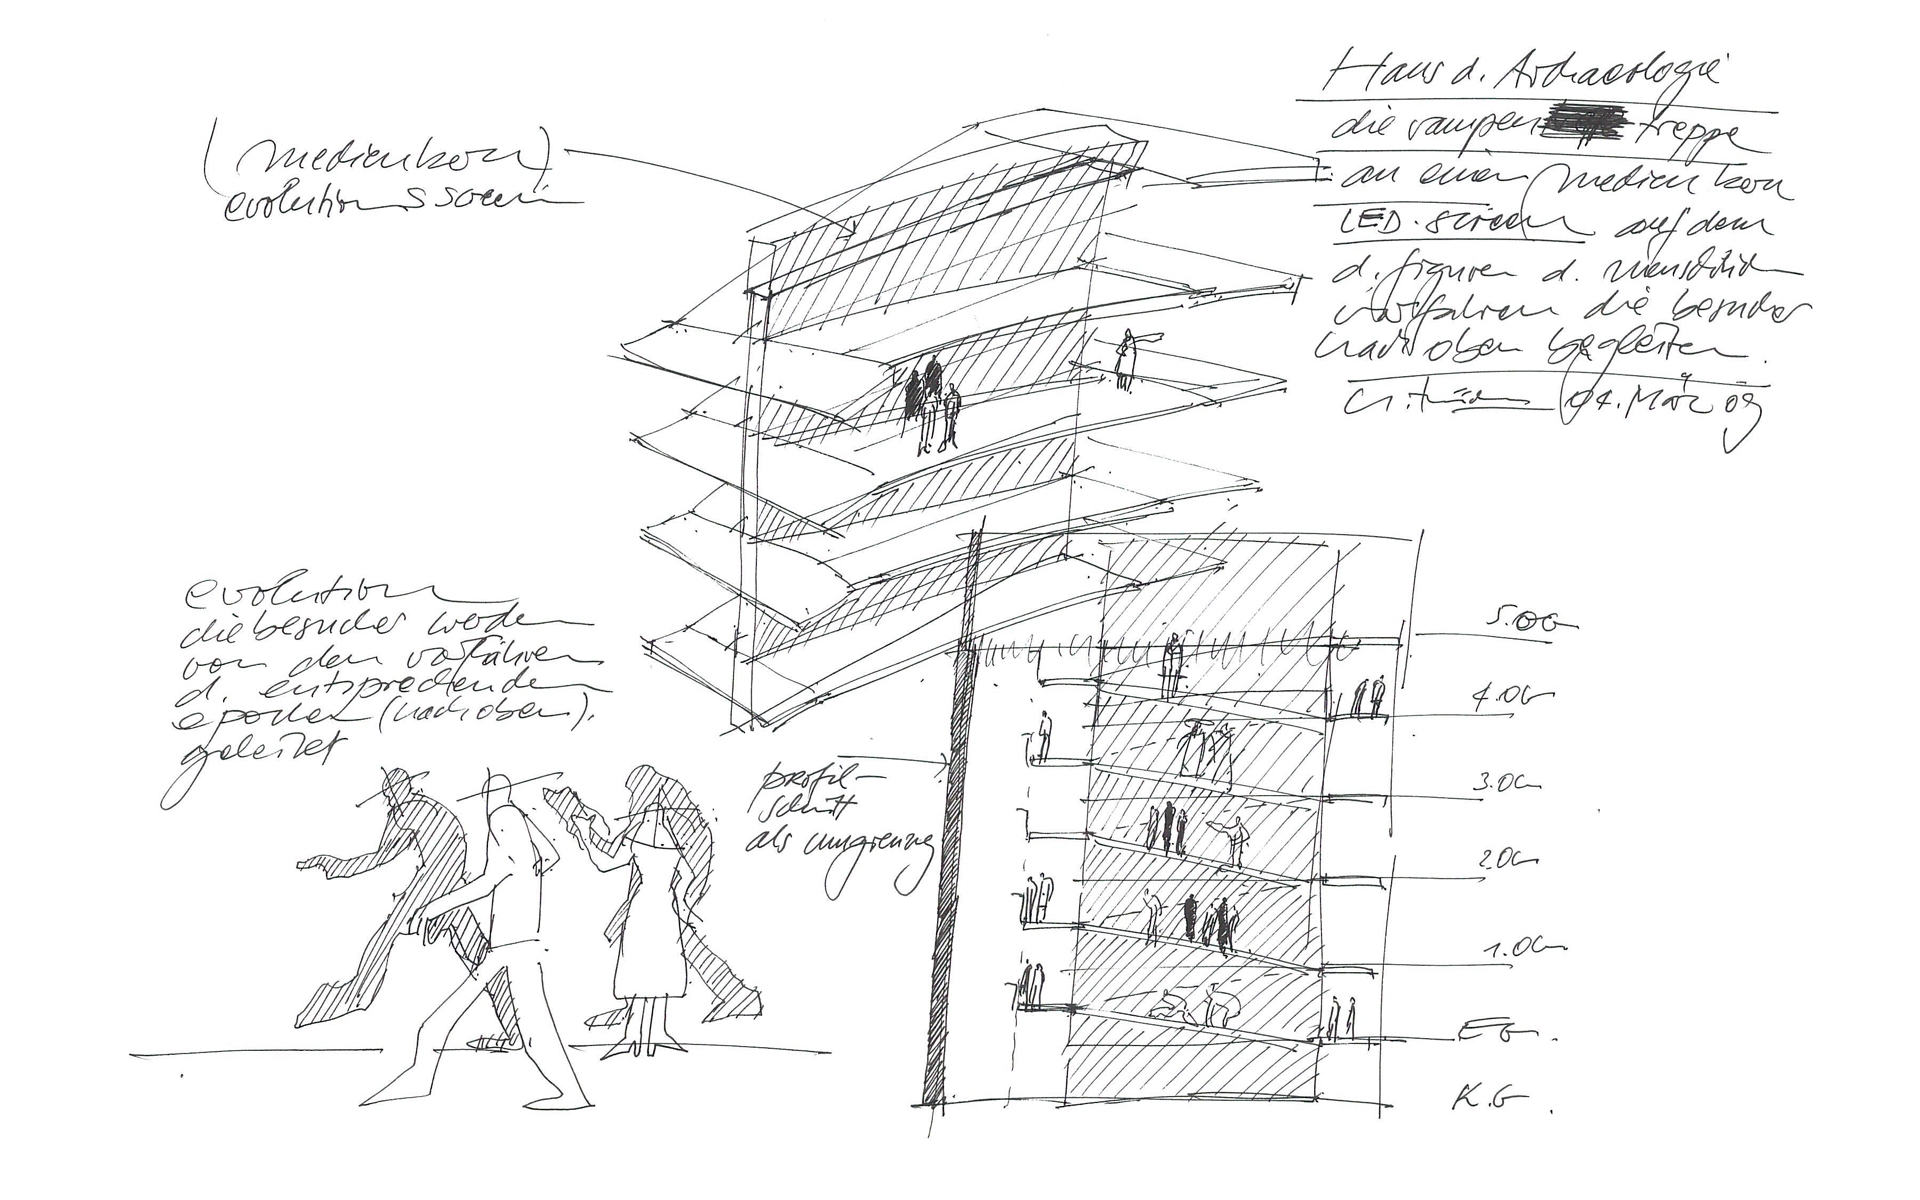 (medienkern)
evolutionsscreen
Haus d. Archaeologie
die rampen treppe
an einem medienkern
LED-screen auf dem
d. figuren d. menschlichen
vorfahren die besucher
nach oben begleiten.
04. März 09
evolution
die besucher werden
von den vorfahren
d. entsprechenden
epochen (nach oben).
geleitet
profil-
schnitt
als umgrenzung
5.OG
4.OG
3.OG
2.OG
1.OG
EG.
K.G.